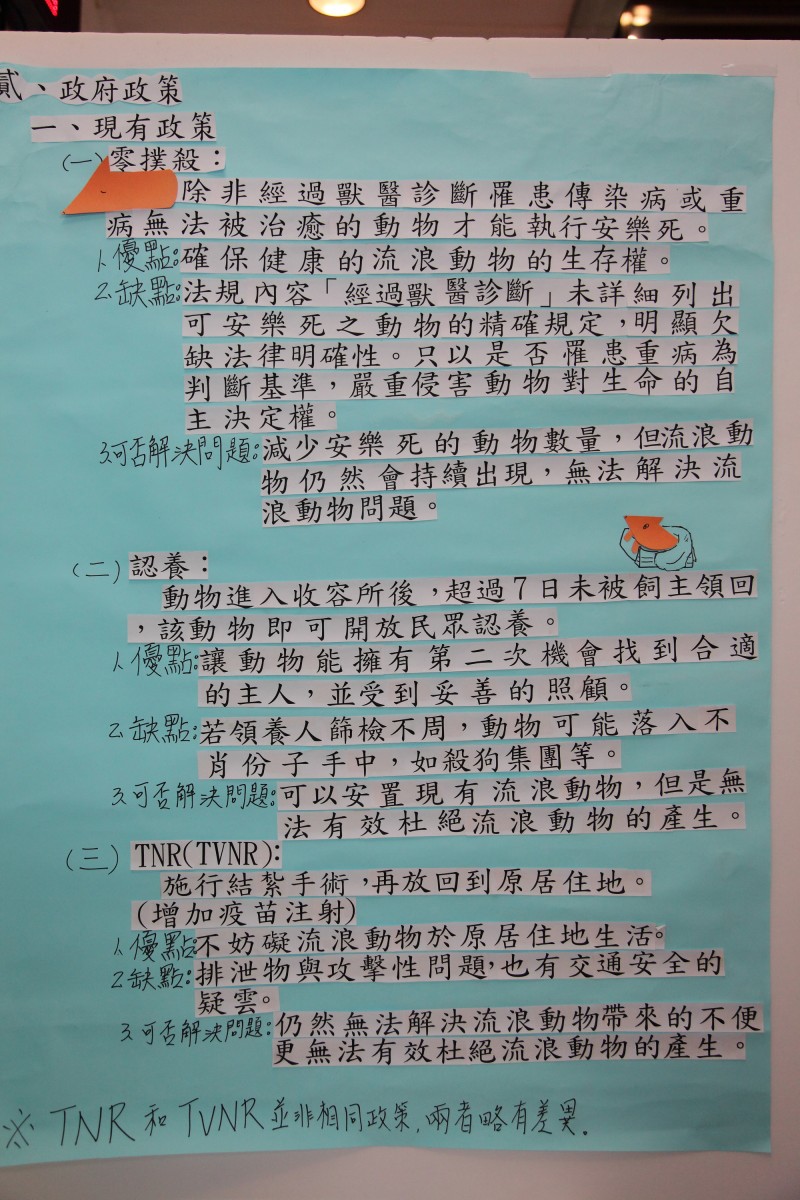 貳、政府政策
一、現有政策
(一)零撲殺：
除非經過獸醫診斷罹患傳染病或重
病無法被治癒的動物才能執行安樂死。
1.優點:確保健康的流浪動物的生存權。
2.缺點:法規內容「經過獸醫診斷」未詳細列出
可安樂死之動物的精確規定，明顯欠
缺法律明確性。只以是否罹患重病為
判斷基準，嚴重侵害動物對生命的自
主決定權。
3.可否解決問題:減少安樂死的動物數量，但流浪動
物仍然會持續出現，無法解決流
浪動物問題。
(二)認養：
動物進入收容所後，超過7日未被飼主領回
，該動物即可開放民眾認養。
1.優點:讓動物能擁有第二次機會找到合適
的主人，並受到妥善的照顧。
2.缺點:若領養人篩檢不周，動物可能落入不
肖份子手中，如殺狗集團等。
3.可否解決問題:可以安置現有流浪動物，但是無
法有效杜絕流浪動物的產生。
(三)TNR(TVNR):
施行結紮手術，再放回到原居住地。
(增加疫苗注射)
1.優點:不妨礙流浪動物於原居住地生活。
2.缺點:排泄物與攻擊性問題，也有交通安全的
疑雲。
3.可否解決問題:仍然無法解決流浪動物帶來的不便
更無法有效杜絕流浪動物的產生。
※TNR和TVNR並非相同政策,兩者略有差異.